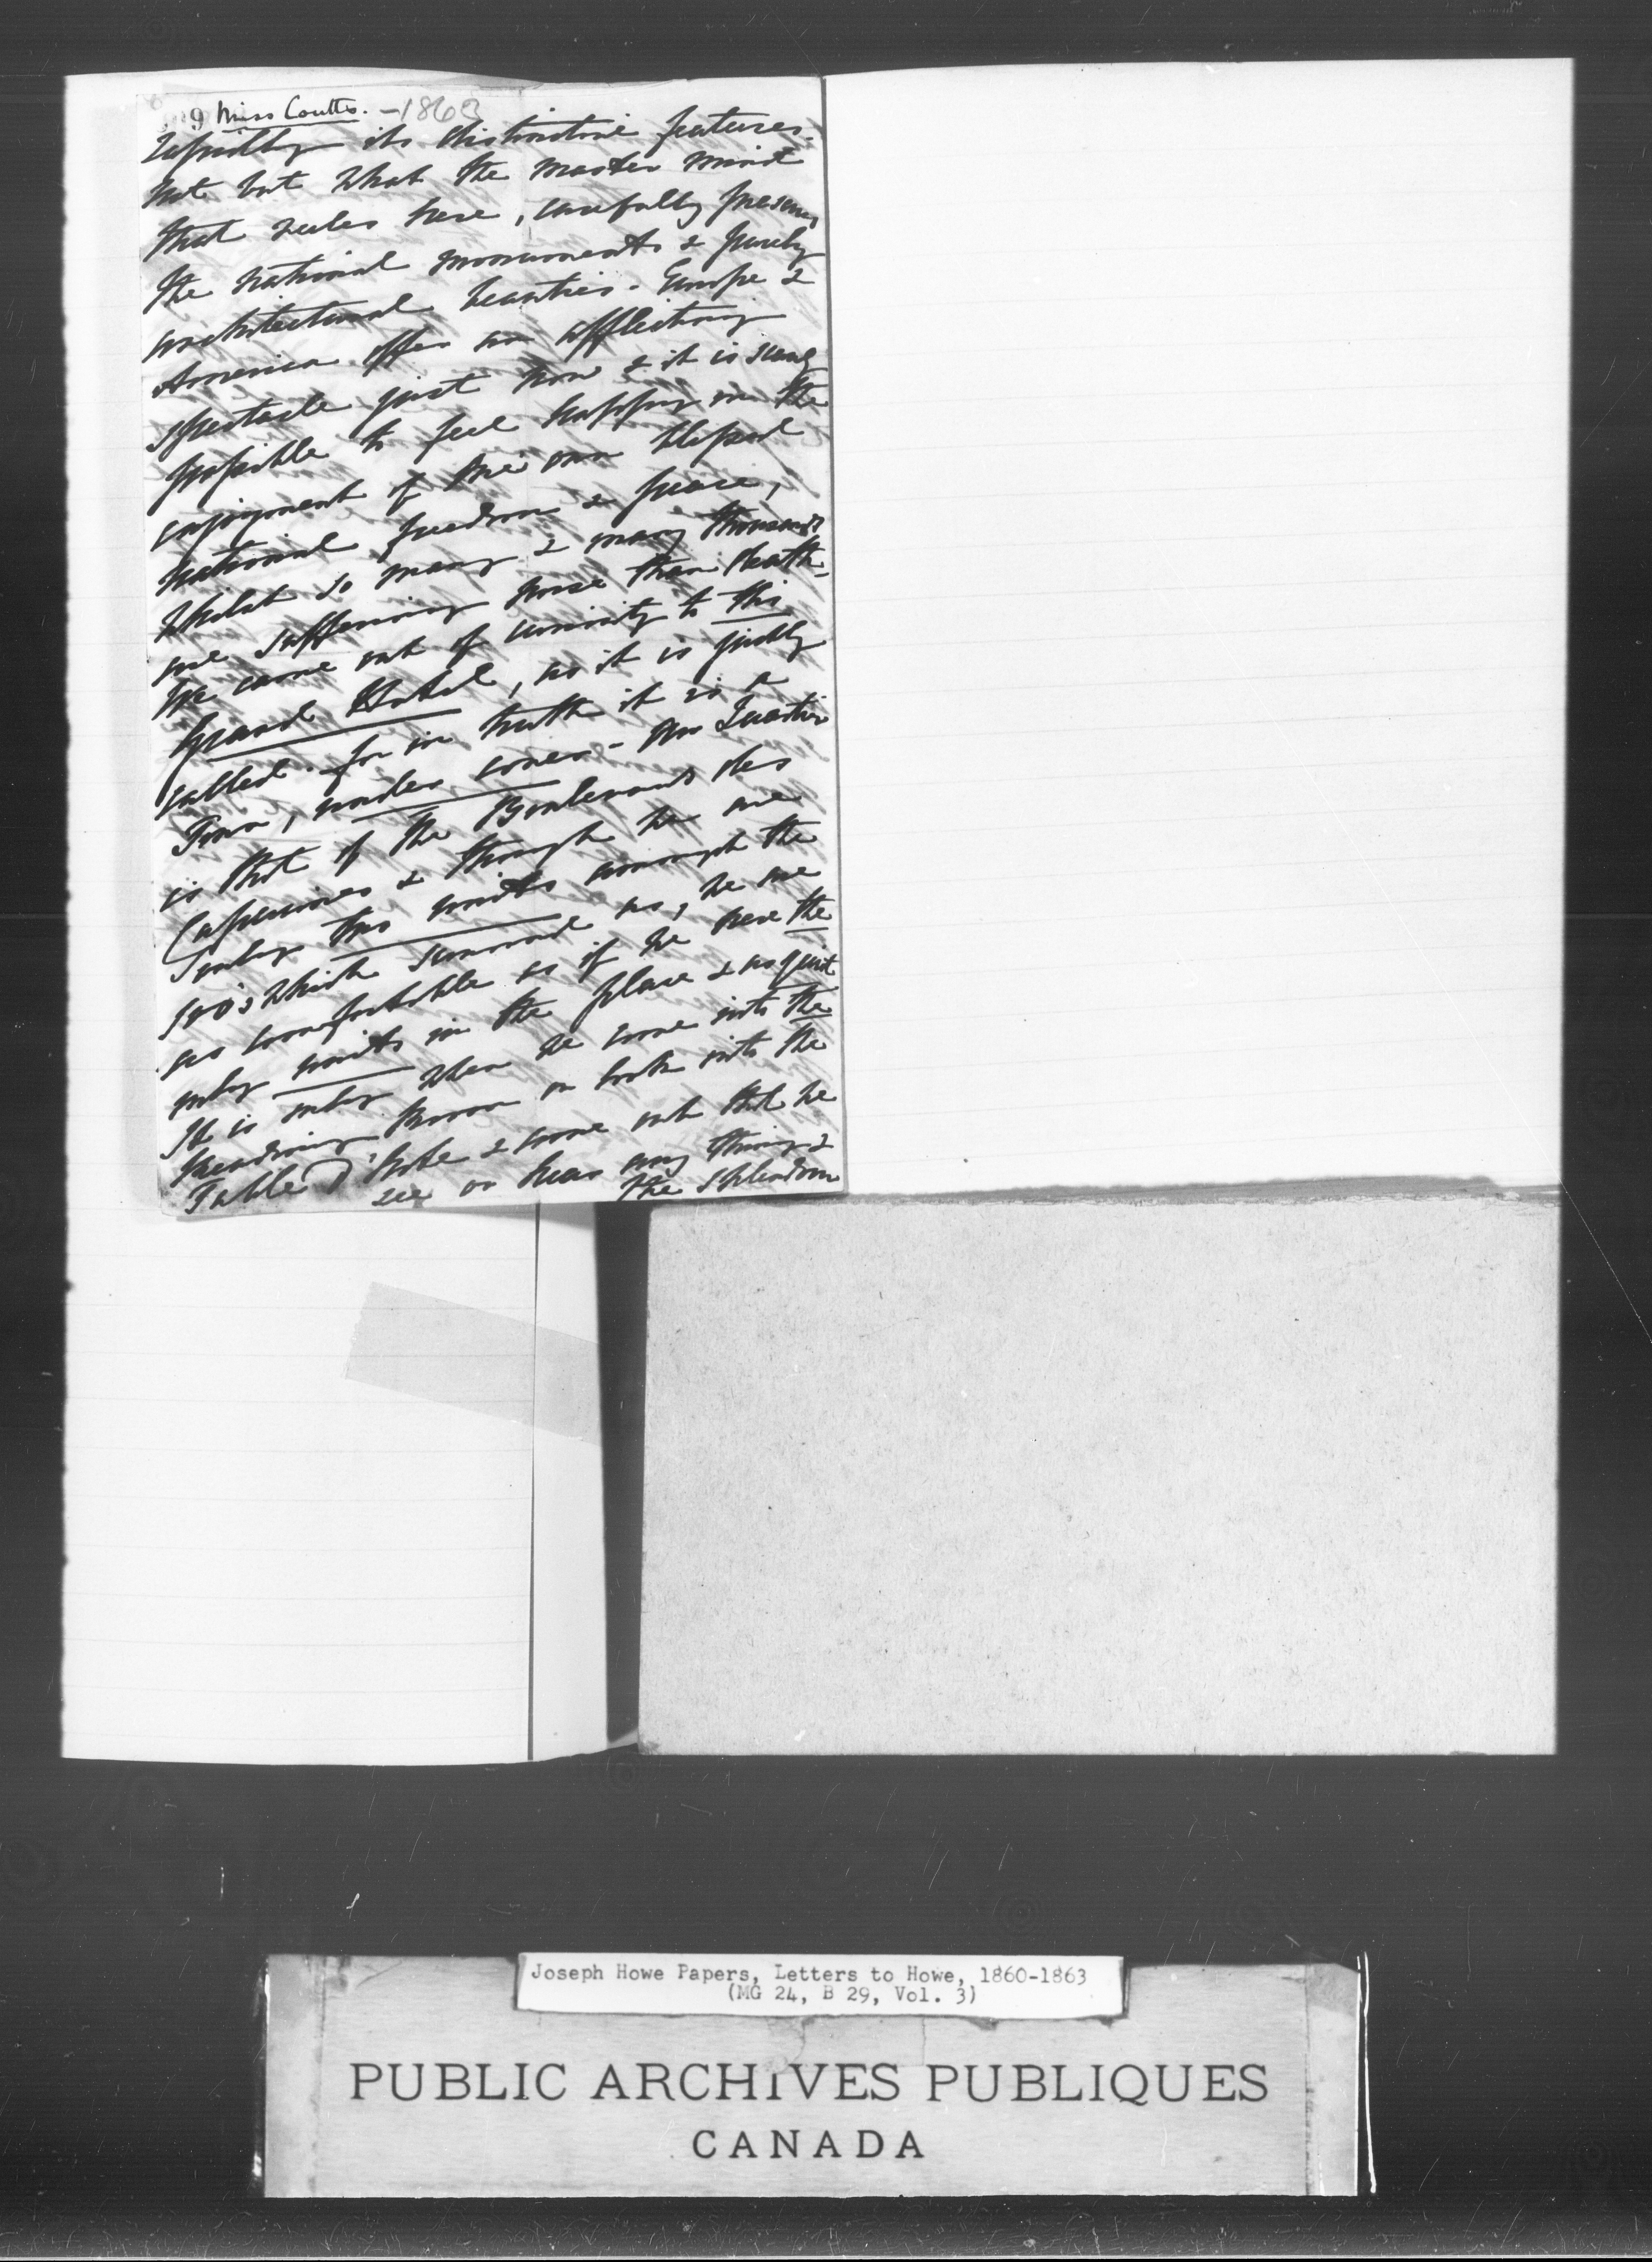 9 Miss Coutts. - 1863
rapidly its distinctive features.
Not but what the master mind
that rules here, carefully preserves
the national monuments & purely
architectural beauties. Europe &
America offer an afflicting
spectacle just now & it is scarcely
possible to feel happy in the
enjoyment of one's own blessed
national freedom & peace,
whilst so many & many thousands
are suffering worse than death.
We came out of curiosity to this
Grand Hotel, as it is justly
called. for in truth it is a
Town, under cover - Our Quartier
is that of the Boulevard des
Capucines & though we are
only two units amongst the
which surround us, we are
as comfortable as if we were the
only units in the place & as quiet
It is only when we come into the
Reading Room or look into the
Table D'hote & come out that we
see or hear any thing &
the splendour
Joseph Howe Papers, Letters to Howe, 1860-1863
(MG 24, B 29, Vol. 3)
PUBLIC ARCHIVES PUBLIQUES
CANADA